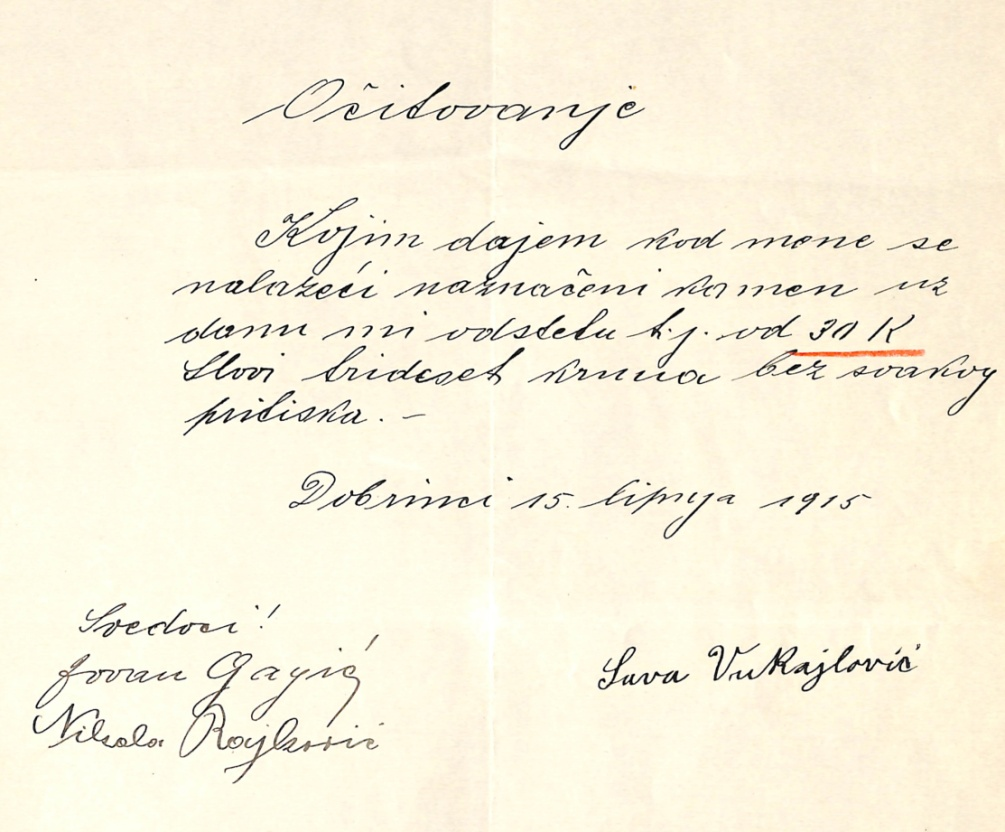 Očitovanje
Kojim dajem kod mene se
nalazeći naznačeni kamen uz
danu mi odstetu t.j. od 30 K
Slovi trideset kruna bez svakog
pritiska. —
Dobrinci 15. lipnja 1915
Svedoci!
Jovan Gajić
Nikola Rajković
Sava Vukajlović